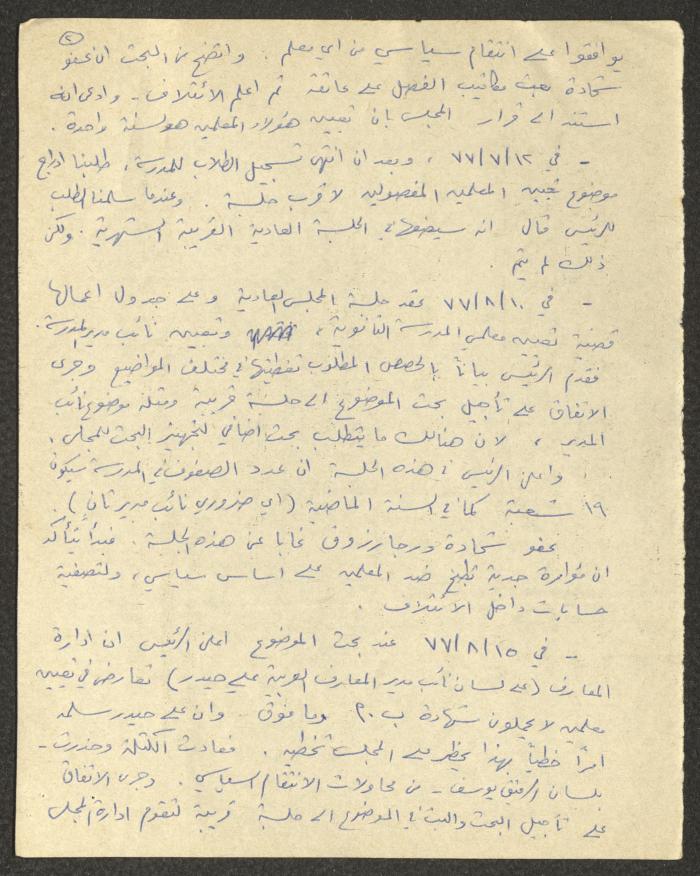 (٢)
يوافقوا على انتقام سياسي من اي معلم . واتضح من البحث ان عفو
شحادة بعث مكاتيب الفصل على عاتقه ثم اعلم الائتلاف - وادعى انه
استند الى قرار المجلس بان تعيين هؤلاء المعلمين هو لسنة واحدة .
- في ٧٧/٧/١٢ ، وبعد ان انتهى تسجيل الطلاب للمدرسة ، طلبنا ادراج
موضوع تعيين المعلمين المفصولين لاقرب جلسة . وعندما سلمنا الطلب
للرئيس قال انه سيضعها في الجلسة العادية القريبة الشهرية . ولكن
ذلك لم يتم .
- في ٧٧/٨/١٠ عقد جلسة المجلس العادية وعلى جدول اعمالها
قضية تعيين معلمي المدرسة الثانوية ، وتعيين نائب مدير المدرسة .
فقدم الرئيس بيانا بالحصص المطلوب تغطيتها في مختلف المواضيع وجرى
الاتفاق على تأجيل بحث الموضوع الى جلسة قريبة ومثله موضوع نائب
المدير ، لان هنالك ما يتطلب بحث اضافي لتجهيز البحث للمجلس .
واعلن الرئيس في هذه الجلسة ان عدد الصفوف في المدرسة سيكون
١٩ شعبة كما في السنة الماضية (اي ضروري نائب مدير ثانٍ) .
عفو شحادة ورجا رزوق غابا عن هذه الجلسة . فبدأ يتأكد
ان مؤامرة جدية تطبخ ضد المعلمين على اساس سياسي ، ولتصفية
حسابات داخل الائتلاف .
- في ٧٧/٨/١٥ عند بحث الموضوع اعلن الرئيس ان ادارة
المعارف (على لسان نائب مدير المعارف العربية علي حيدر) تعارض في تعيين
معلمين لا يحملون شهادة ب . أ وما فوق . وان علي حيدر سلمه
امرًا خطيًا بهذا يحظر على المجلس تخطيه . فعادت الكتلة وحذرت -
بلسان الرفيق يوسف - من محاولات الانتقام السياسي . وجرى الاتفاق
على تأجيل البحث والبت في الموضوع الى جلسة قريبة لتقوم ادارة المجلس